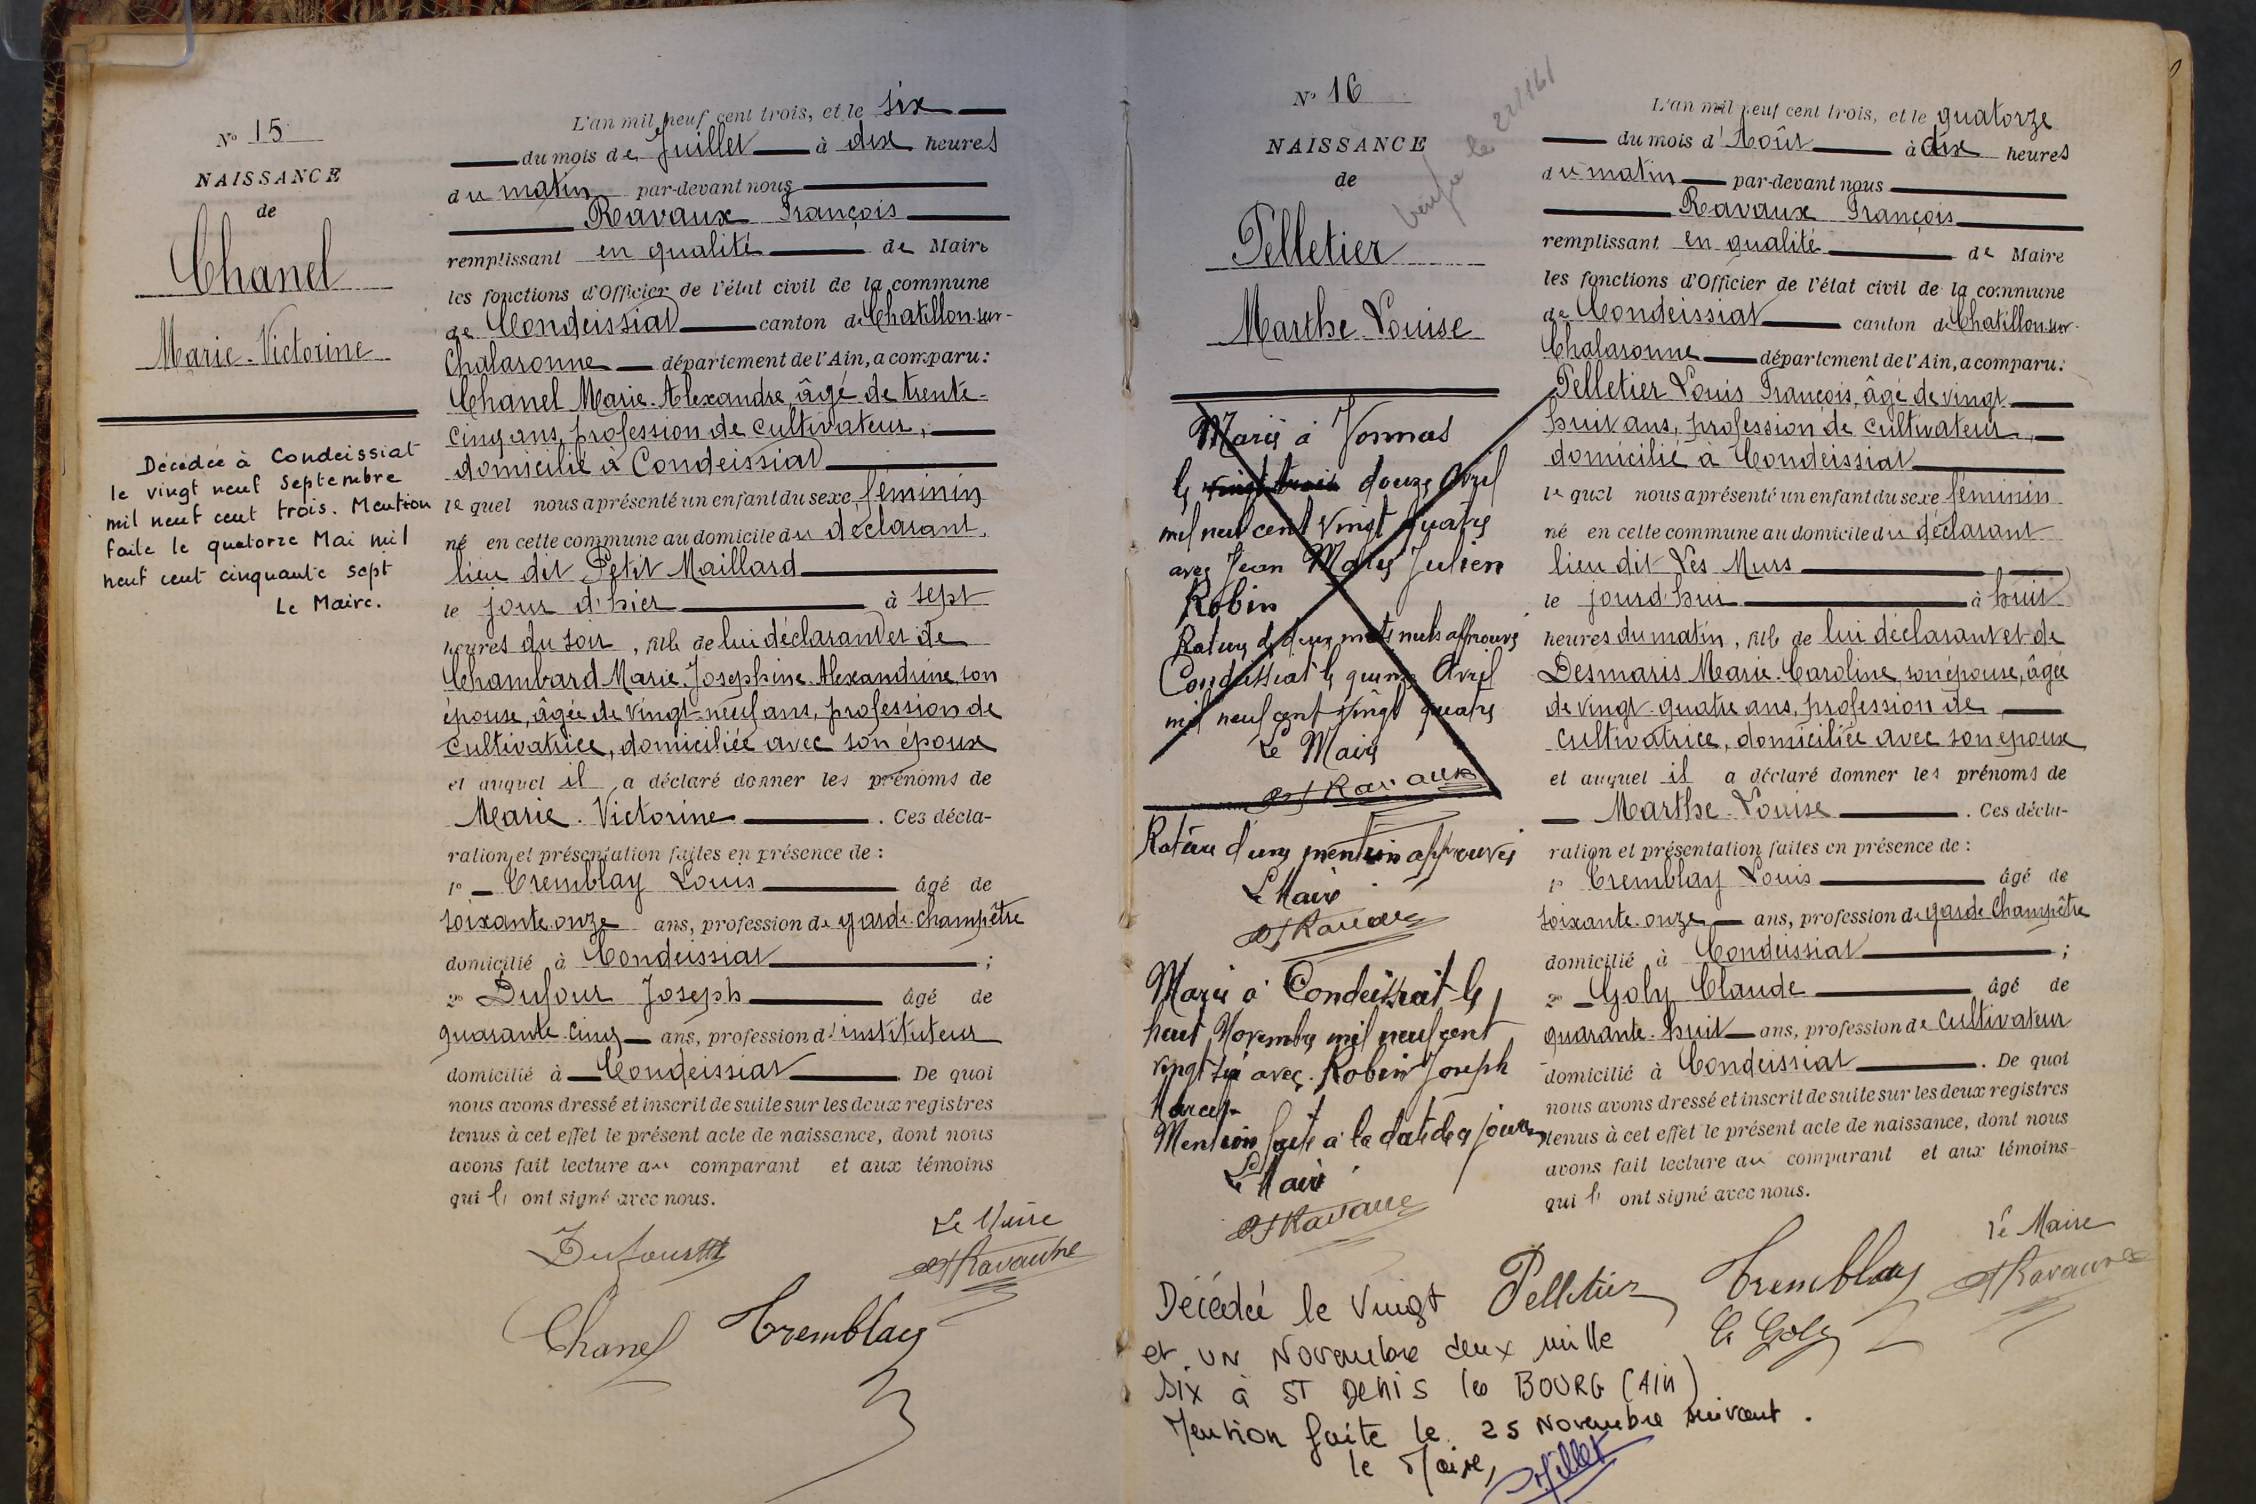 N° 15
NAISSANCE
de
Chanel
Marie-Victorine
Décédée à Condeissiat
le vingt neuf Septembre
mil neuf cent trois. Mention
faite le quatorze Mai mil
neuf cent cinquante sept
Le Maire.
L'an mil neuf cent trois, et le six
du mois de Juillet à dix heures
du matin par-devant nous
Ravaux François
remplissant en qualité de Maire
les fonctions d'Officier de l'état civil de la commune
de Condeissiat canton de Chatillon-sur-
Chalaronne département de l'Ain, a comparu:
Chanel Marie-Alexandre, âgé de trente-
cinq ans, profession de cultivateur,
domicilié à Condeissiat
lequel nous a présenté un enfant du sexe féminin
né en cette commune au domicile du déclarant,
lieu dit Petit Maillard
le jour d'hier à sept
heures du soir, fille de lui déclarant et de
Chambard Marie-Josephine-Alexandrine, son
épouse, âgée de vingt-neuf ans, profession de
cultivatrice, domiciliée avec son époux
et auquel il a déclaré donner les prénoms de
Marie-Victorine. Ces décla-
ration et présentation faites en présence de:
1° Tremblay Louis âgé de
soixante-onze ans, profession de garde-champêtre
domicilié à Condeissiat;
2° Dufour Joseph âgé de
quarante-cinq ans, profession d'instituteur
domicilié à Condeissiat. De quoi
nous avons dressé et inscrit de suite sur les deux registres
tenus à cet effet le présent acte de naissance, dont nous
avons fait lecture au comparant et aux témoins
qui ont signé avec nous.
Le Maire
Dufour
Ravaux
Chanel Tremblay
N° 16
NAISSANCE
de
Pelletier
Marthe-Louise
Mariée à Vonnas
le vingt trois douze Avril
mil neuf cent vingt quatre
avec Jean Marie Julien
Robin
Rature de deux mots nuls approuvée
Condeissiat le quinze Avril
mil neuf cent vingt quatre
Le Maire
Ravaux
Rature d'une mention approuvée
Le Maire
Ravaux
Mariée à Condeissiat le
huit Novembre mil neuf cent
vingt six avec Robin Joseph
Marcel
Mention faite à la date de ce jour
Le Maire
Ravaux
Décédée le Vingt
et UN Novembre deux mille
six à ST DENIS les BOURG (AIN)
Mention faite le 25 Novembre suivant.
le Maire,
L'an mil neuf cent trois, et le quatorze
du mois d'Août à dix heures
du matin par-devant nous
Ravaux François
remplissant en qualité de Maire
les fonctions d'Officier de l'état civil de la commune
de Condeissiat canton de Chatillon-sur-
Chalaronne département de l'Ain, a comparu:
Pelletier Louis François, âgé de vingt
huit ans, profession de cultivateur,
domicilié à Condeissiat
lequel nous a présenté un enfant du sexe féminin
né en cette commune au domicile du déclarant
lieu dit Les Murs
le jourd'hui à huit
heures du matin, fille de lui déclarant et de
Desmaris Marie-Caroline, son épouse, âgée
de vingt-quatre ans, profession de
cultivatrice, domiciliée avec son époux
et auquel il a déclaré donner les prénoms de
Marthe-Louise. Ces décla-
ration et présentation faites en présence de:
1° Tremblay Louis âgé de
soixante-onze ans, profession de garde Champêtre
domicilié à Condeissiat;
2° Goly Claude âgé de
quarante-huit ans, profession de cultivateur
domicilié à Condeissiat. De quoi
nous avons dressé et inscrit de suite sur les deux registres
tenus à cet effet le présent acte de naissance, dont nous
avons fait lecture au comparant et aux témoins
qui ont signé avec nous.
Le Maire
Pelletier Tremblay Ravaux
Goly